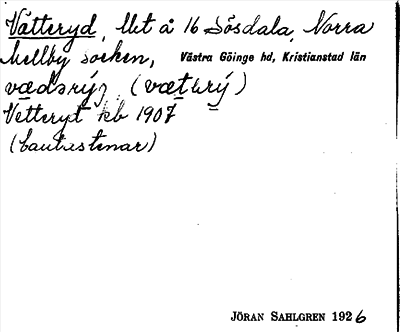 Vätteryd, Mt å 16 Sösdala, Norra
Mellby socken, Västra Göinge hd, Kristianstad län
vædərýꝺ (væt​ərý)
Vetteryt kb 1907
(bautastenar)
JÖRAN SAHLGREN 1926